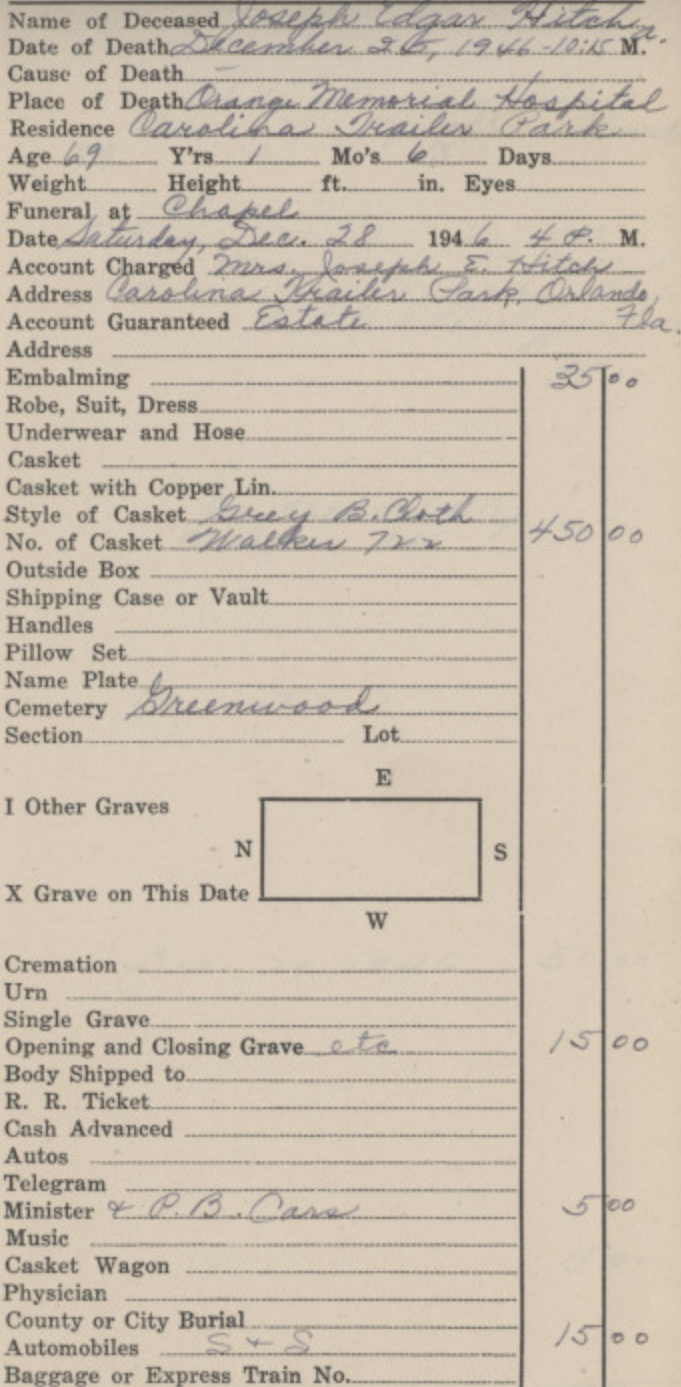 Name of Deceased Joseph Edgar Hitch
Date of Death December 25, 1946-10:15 a. M.
Cause of Death -
Place of Death Orange Memorial Hospital
Residence Carolina Trailer Park
Age 69 Y'rs 1 Mo's 6 Days
Weight Height ft. in. Eyes
Funeral at Chapel
Date Saturday, Dec. 28 1946 4 P. M.
Account Charged Mrs. Joseph E. Hitch
Address Carolina Trailer Park, Orlando, Fla.
Account Guaranteed Estate
Address
Embalming 35 00
Robe, Suit, Dress
Underwear and Hose
Casket
Casket with Copper Lin.
Style of Casket Grey B. Cloth
No. of Casket Walker 722 450 00
Outside Box
Shipping Case or Vault
Handles
Pillow Set
Name Plate
Cemetery Greenwood
Section Lot
E
I Other Graves
N S
X Grave on This Date
W
Cremation
Urn
Single Grave
Opening and Closing Grave etc 15 00
Body Shipped to
R. R. Ticket
Cash Advanced
Autos
Telegram
Minister & P.B. Cars 5 00
Music
Casket Wagon
Physician
County or City Burial
Automobiles S & S 15 00
Baggage or Express Train No.